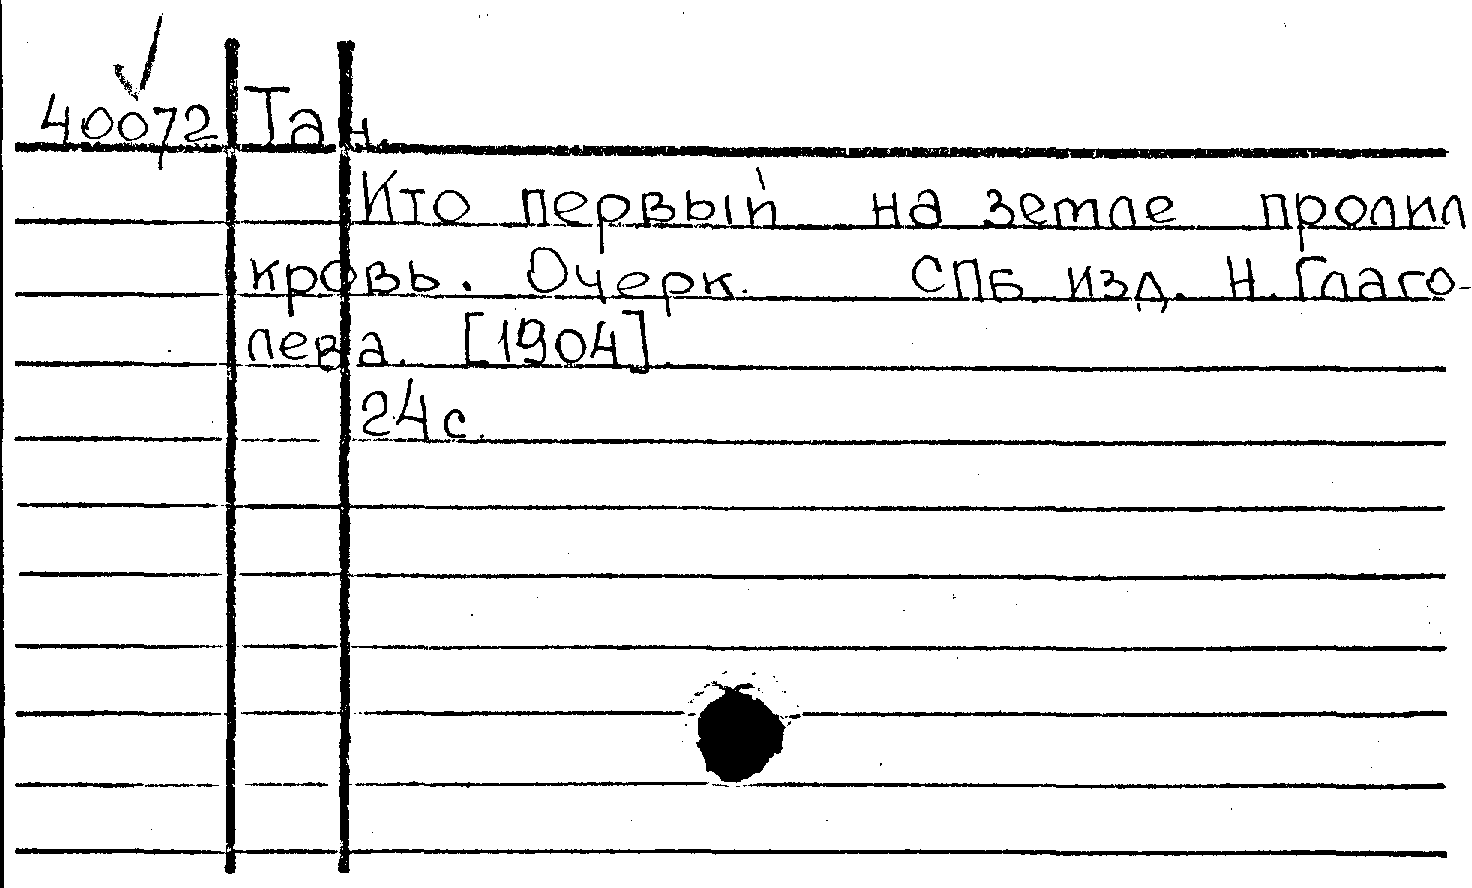 40072 Тан.
Кто первый на земле пролил
кровь. Очерк. СПБ. изд. Н. Глаго-
лева. [1904]
24 с.